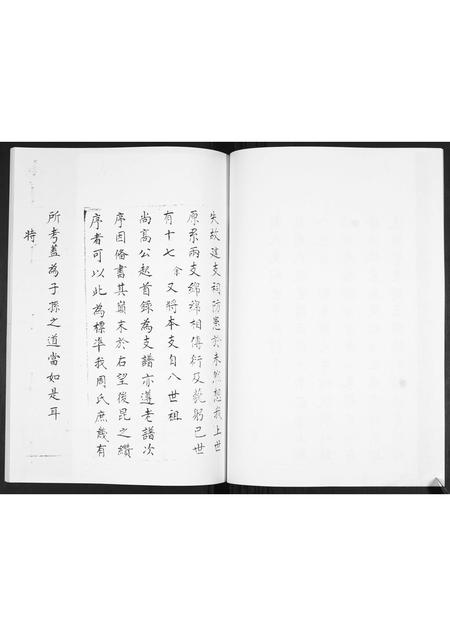 失故建支祠防患於未然想我上世
原系兩支綿綿相傳衍及藐躬已世
有十七余又將本支自八世祖
尚高公起首錄為支譜亦遵老譜次
序因俻書其巔末於右望後昆之纘
序者可以此為標準我周氏庶幾有
所考蓋為子孫之道當如是耳
特